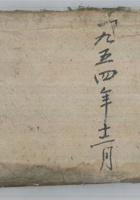 一九五四年十二月